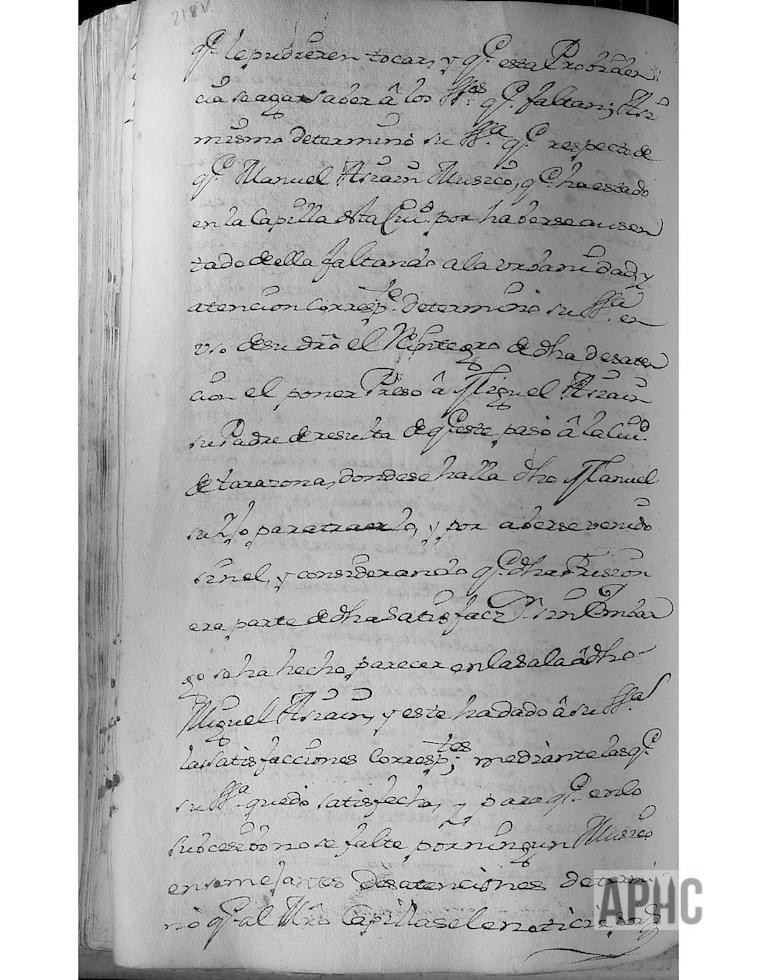 218v.
q.e le pudieren tocar, y q.e esta Providen
cia se aga saver â los SS.res q.e faltan; Asi
mismo determinò su SS.a q.e respecto de
q.e Manuel Asiain Musico, q.e ha estado
en la Capilla desta Ciu.d por haverse ausen
tado de ella faltando a la vrbanidad, y
atencion corresp.te determinò su SS.a en
vso de su dro el Reintegro de dha desaten
cion el poner Preso â Miguel Asiain
su Padre de resulta de q.e este pasò â la Ciu.d
de tarazona, donde se halla dho Manuel
su hijo para traerlo, y por averse venido
sin el, y considerando q.e dha Prision
era parte de dha Satisfacz.n sin Embar
go se ha hecho parecer en la sala â dho
Miguel Asiain, y este ha dado â su SS.a
las satisfacciones corresp.tes; mediante las q.e
su SS.a quedò satisfecha, y para q.e en lo
subcesibo no se falte por ningun Musico
en semejantes desatenciones determi-
nò q.e al Mro Capilla se le noticie
APHC